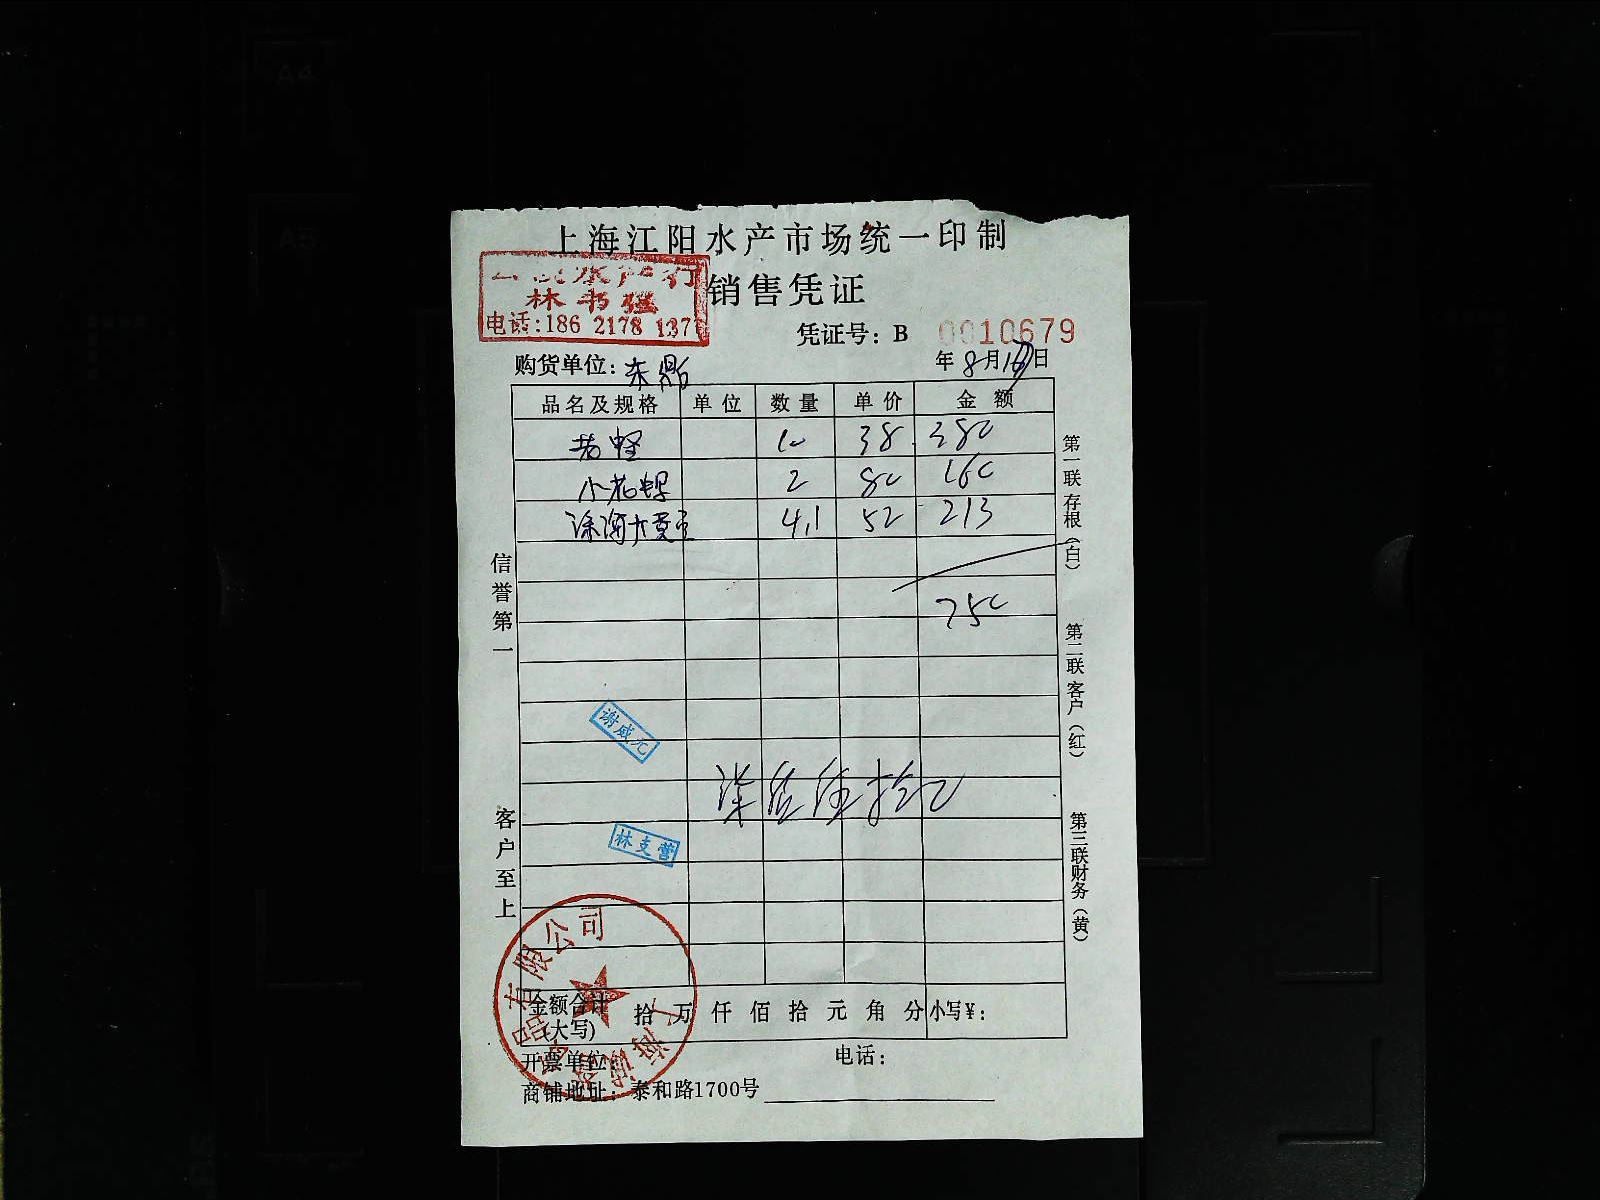 上海江阳水产市场统一印制
水产行
林书强
电话:186 2178 1377
销售凭证
凭证号: B 0010679
购货单位: 东鼎
年 8 月 16 日
品名及规格 单位 数量 单价 金额
10 38 380
小花螺 2 80 160
深海大黄 4.1 52 213
750
谢威元
柒佰伍拾元
林支营
信誉第一
客户至上
第一联存根(白)
第二联客户(红)
第三联财务(黄)
金额合计(大写) 拾 万 仟 佰 拾 元 角 分 小写¥:
开票单位: 电话:
商铺地址: 泰和路1700号
品有限公司
上海诚